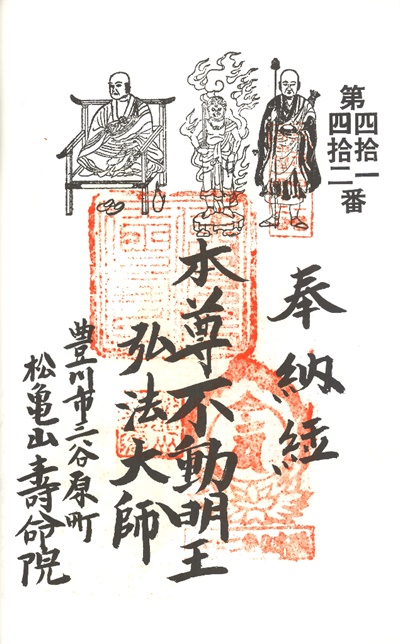 第四拾一
四拾二番
奉納経
本尊不動明王
弘法大師
豊川市三谷原町
松亀山壽命院